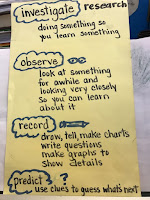 investigate research
doing something so
you learn something
observe
look at something
for awhile and
looking very closely
so you can learn
about it
record
draw, tell, make charts
write questions
make graphs to
show details
predict ?
use clues to guess what's next